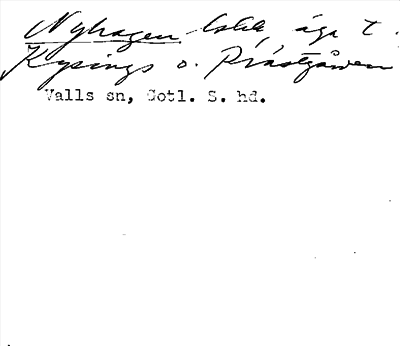 Nyhagen lokk, äga t.
Kysings o. Prästgården
Valls sn, Gotl. S. hd.